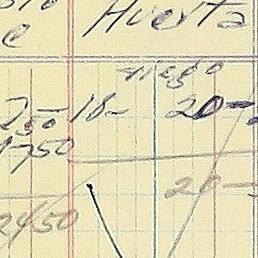 e Huerta
riego
250 18- 20-
1750
20-
2450